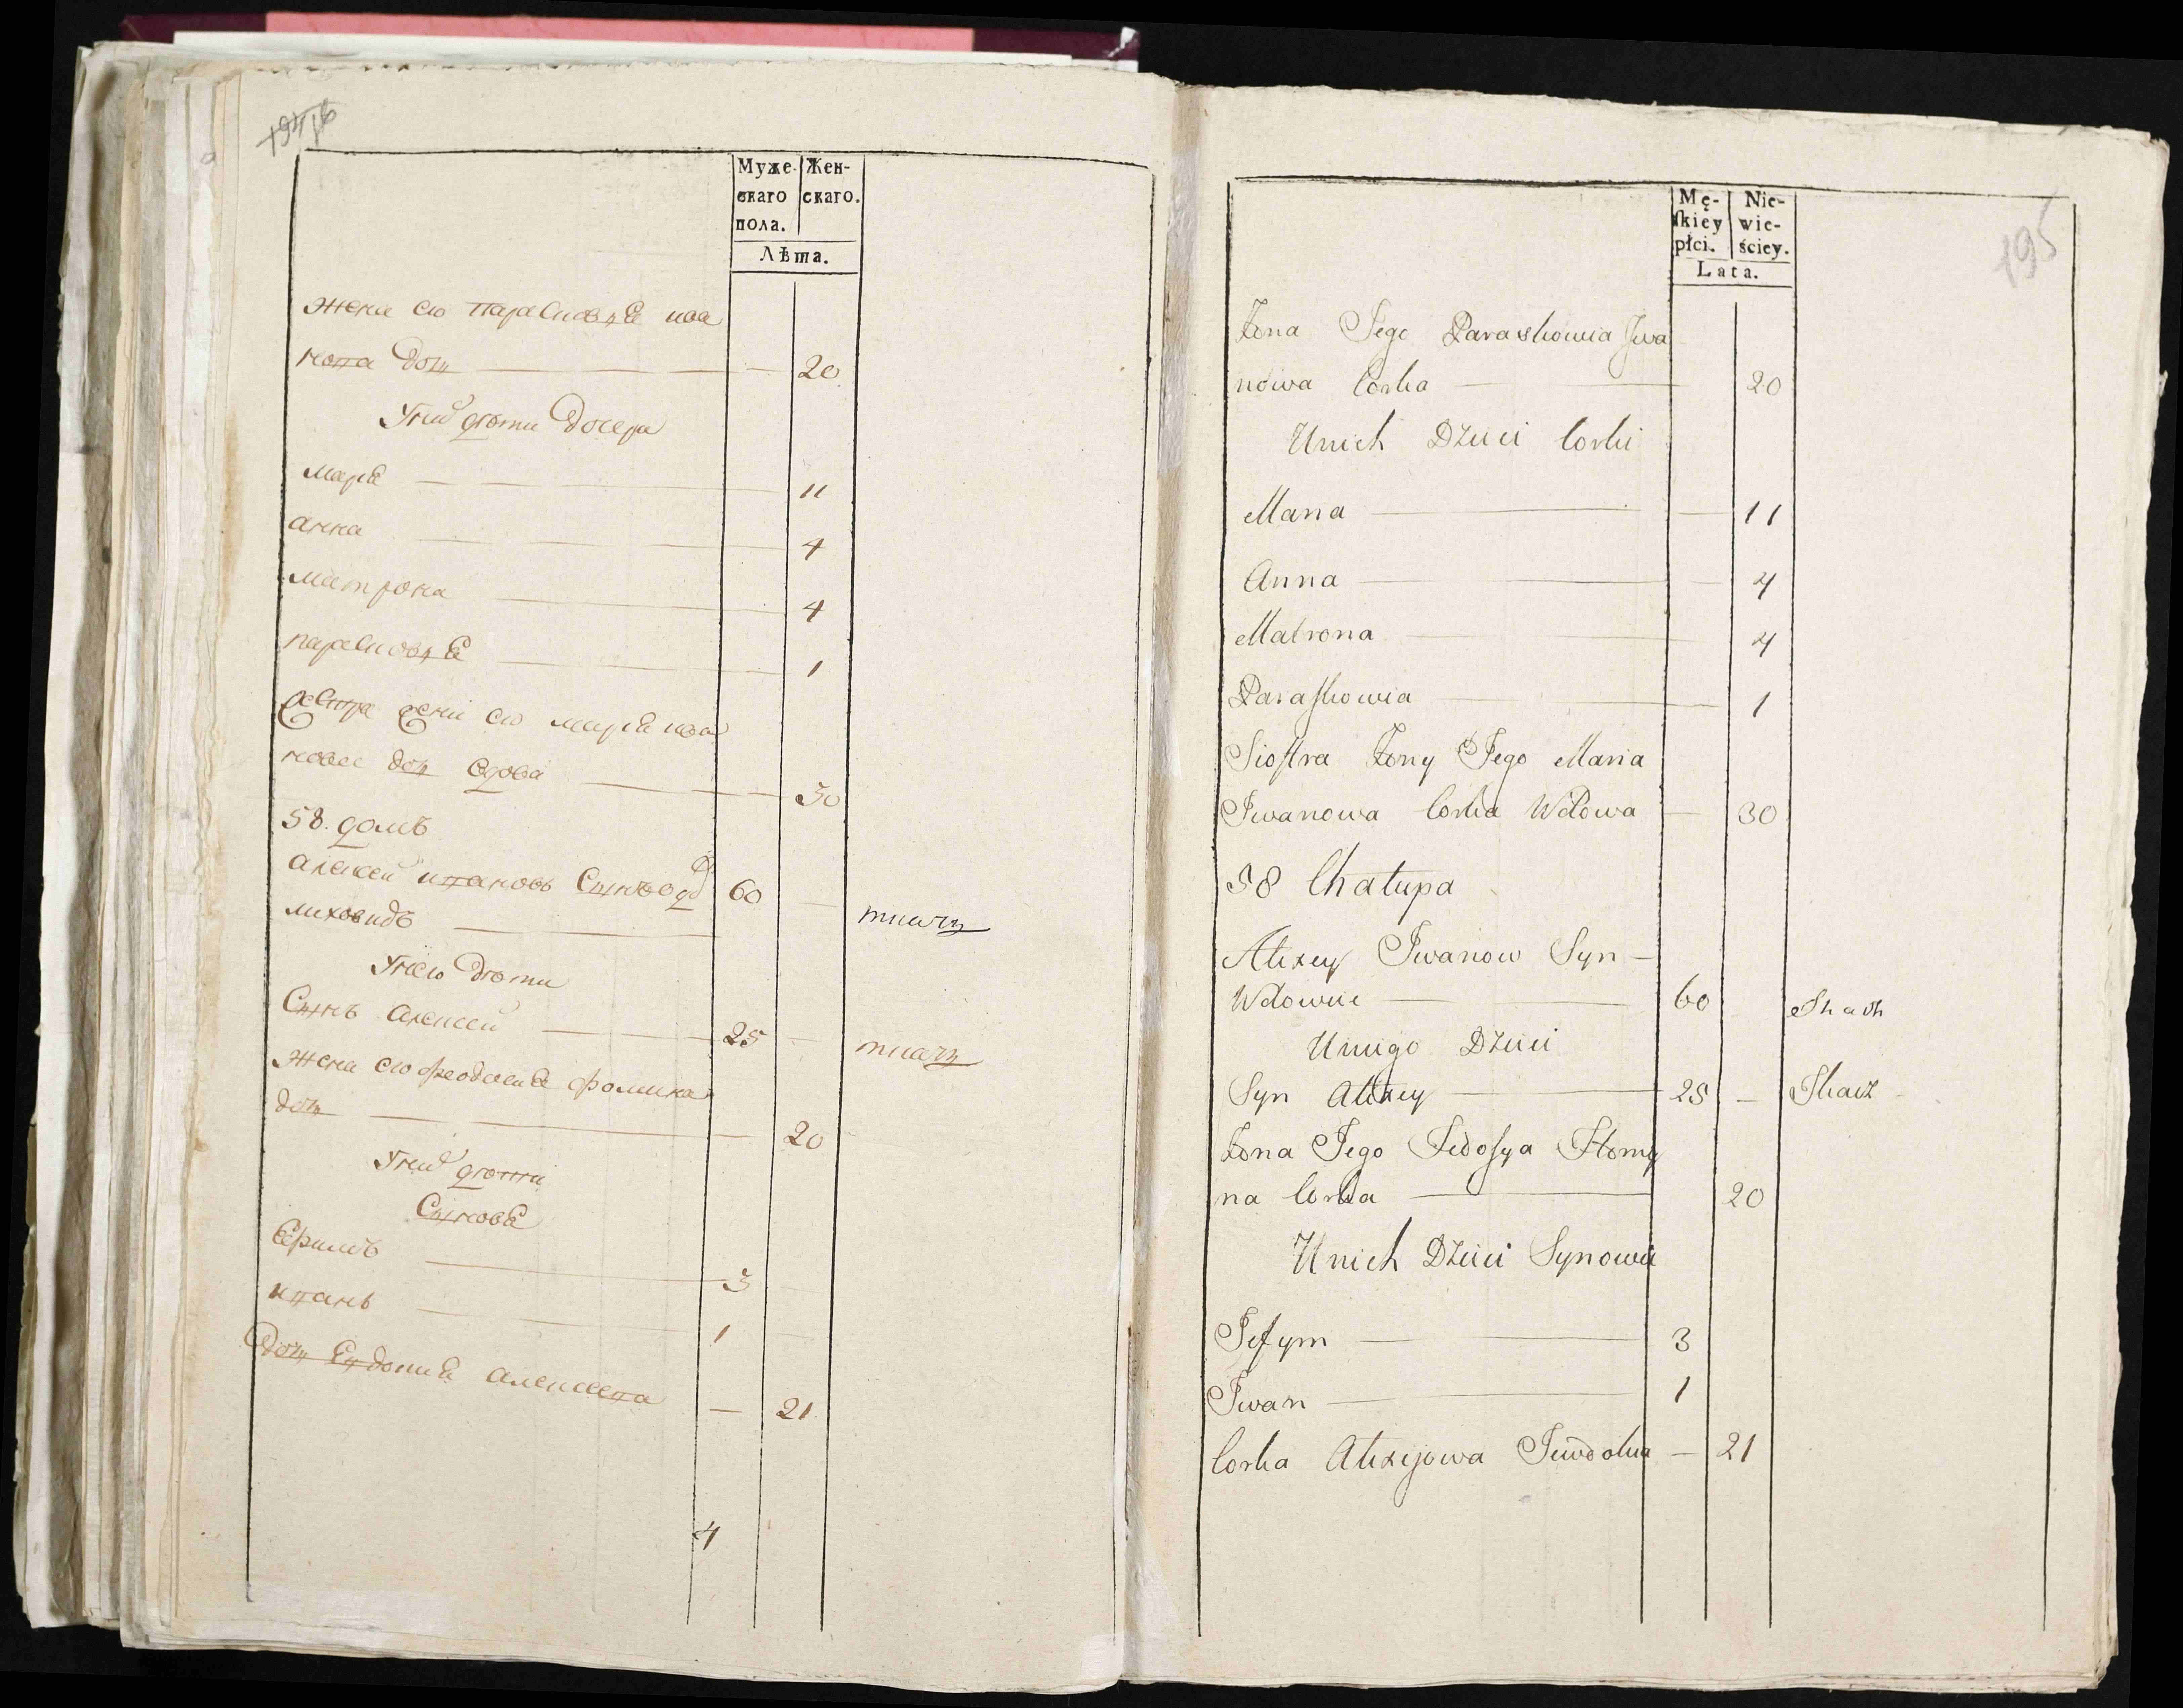 Муже-
скаго
пола.
Жен-
скаго.
Лѣта.
жена его Парасковья ива
нова дочь 20
У них дѣти дочери
Марья 11
Анна 4
Матрона 4
Парасковья 1
Сестра жены его Марья ива
нова дочь вдова 30
58. домъ
Алексей ивановъ Сынъ вдо 60
ткачь
У него дѣти
Сынъ Алексей 25 ткачь
Жена его Феодосия Фомина
дочь 20
У них дѣти
Сыновья
Ефимъ 3
иванъ 1
дочь Евдокия Алексеева — 21
4
195
Mę-
skiey
płci.
Nie-
wie-
ściey.
Lata.
Żona Jego Paraskowia Jwa
nowa Corka 20
Unich Dzieci Corki
Maria 11
Anna 4
Matrona 4
Paraskowia 1
Siostra Żony Jego Maria
Jwanowa Corka Wdowa — 30
58 Chałupa
Alexey Jwanow Syn —
Wdowiec 60 Tkacz
Uniego Dzieci
Syn Alexey 25 — Tkacz
Żona Jego Fedosya Homy
na Corka 20
Unich Dzieci Synowie
Jefym 3
Jwan 1
Corka Alexejowa Jewdokia — 21